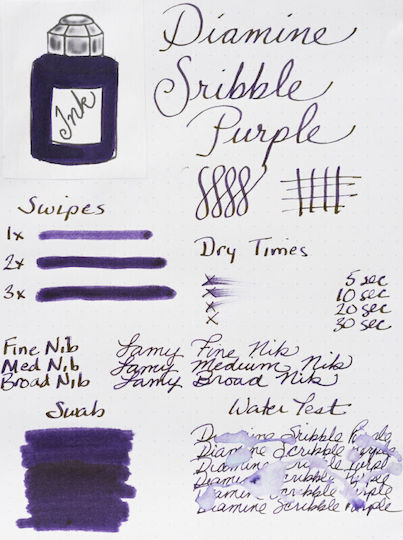 Diamine
Sribble
Purple
Ink
Swipes
1x
2x
3x
Dry Times
x 5 sec
x 10 sec
x 20 sec
x 30 sec
Fine Nib Lamy Fine Nib
Med Nib Lamy Medium Nib
Broad Nib Lamy Broad Nib
Swab
Water Test
Diamine Sribble Purple
Diamine Scribble Purple
Diamine Scribble Purple
Diamine Scribble Purple
Diamine Scribble Purple
Diamine Scribble Purple